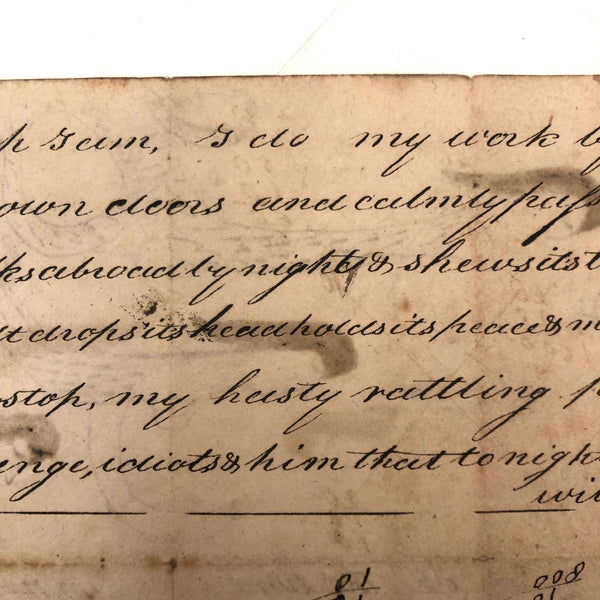 h I am, I do my work by
own doors and calmly pass
ks abroad by night & shews its t
t drops its head holds its peace & m
stop, my hasty rattling p
enge, idiots & him that to night
wi
01 008